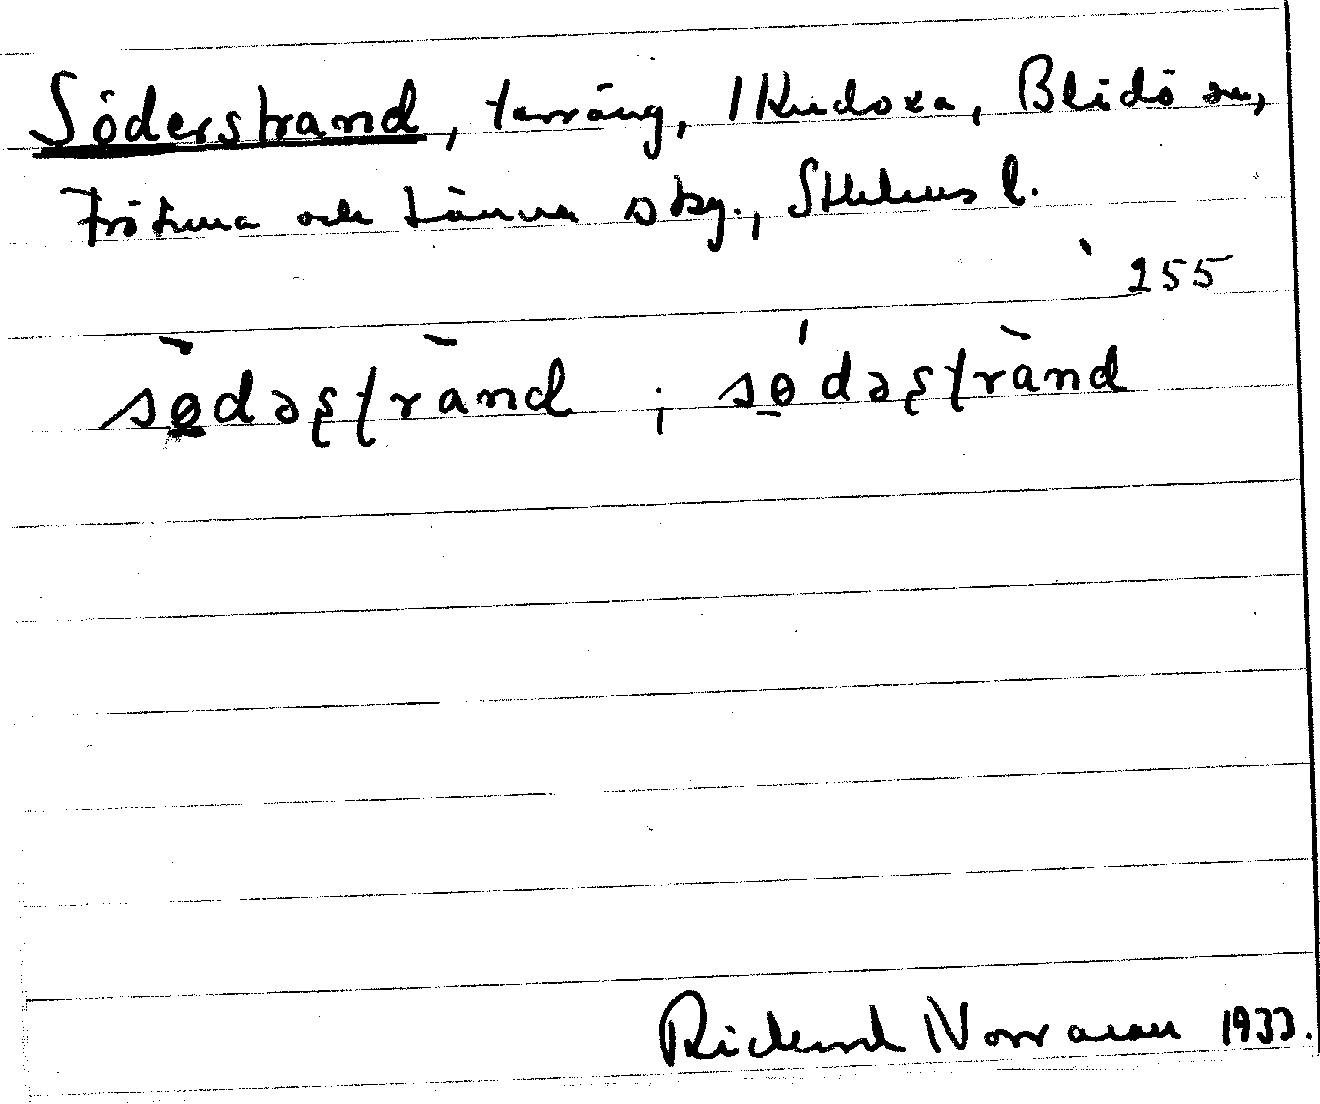 Söderstrand, terräng, Ikudoxa, Blidö sn,
Frötuna och Länna skg., Sthlms l.
255
sø̀dəʂʈrànd ; sǿdəʂʈrànd
Rickard Norraman 1933.